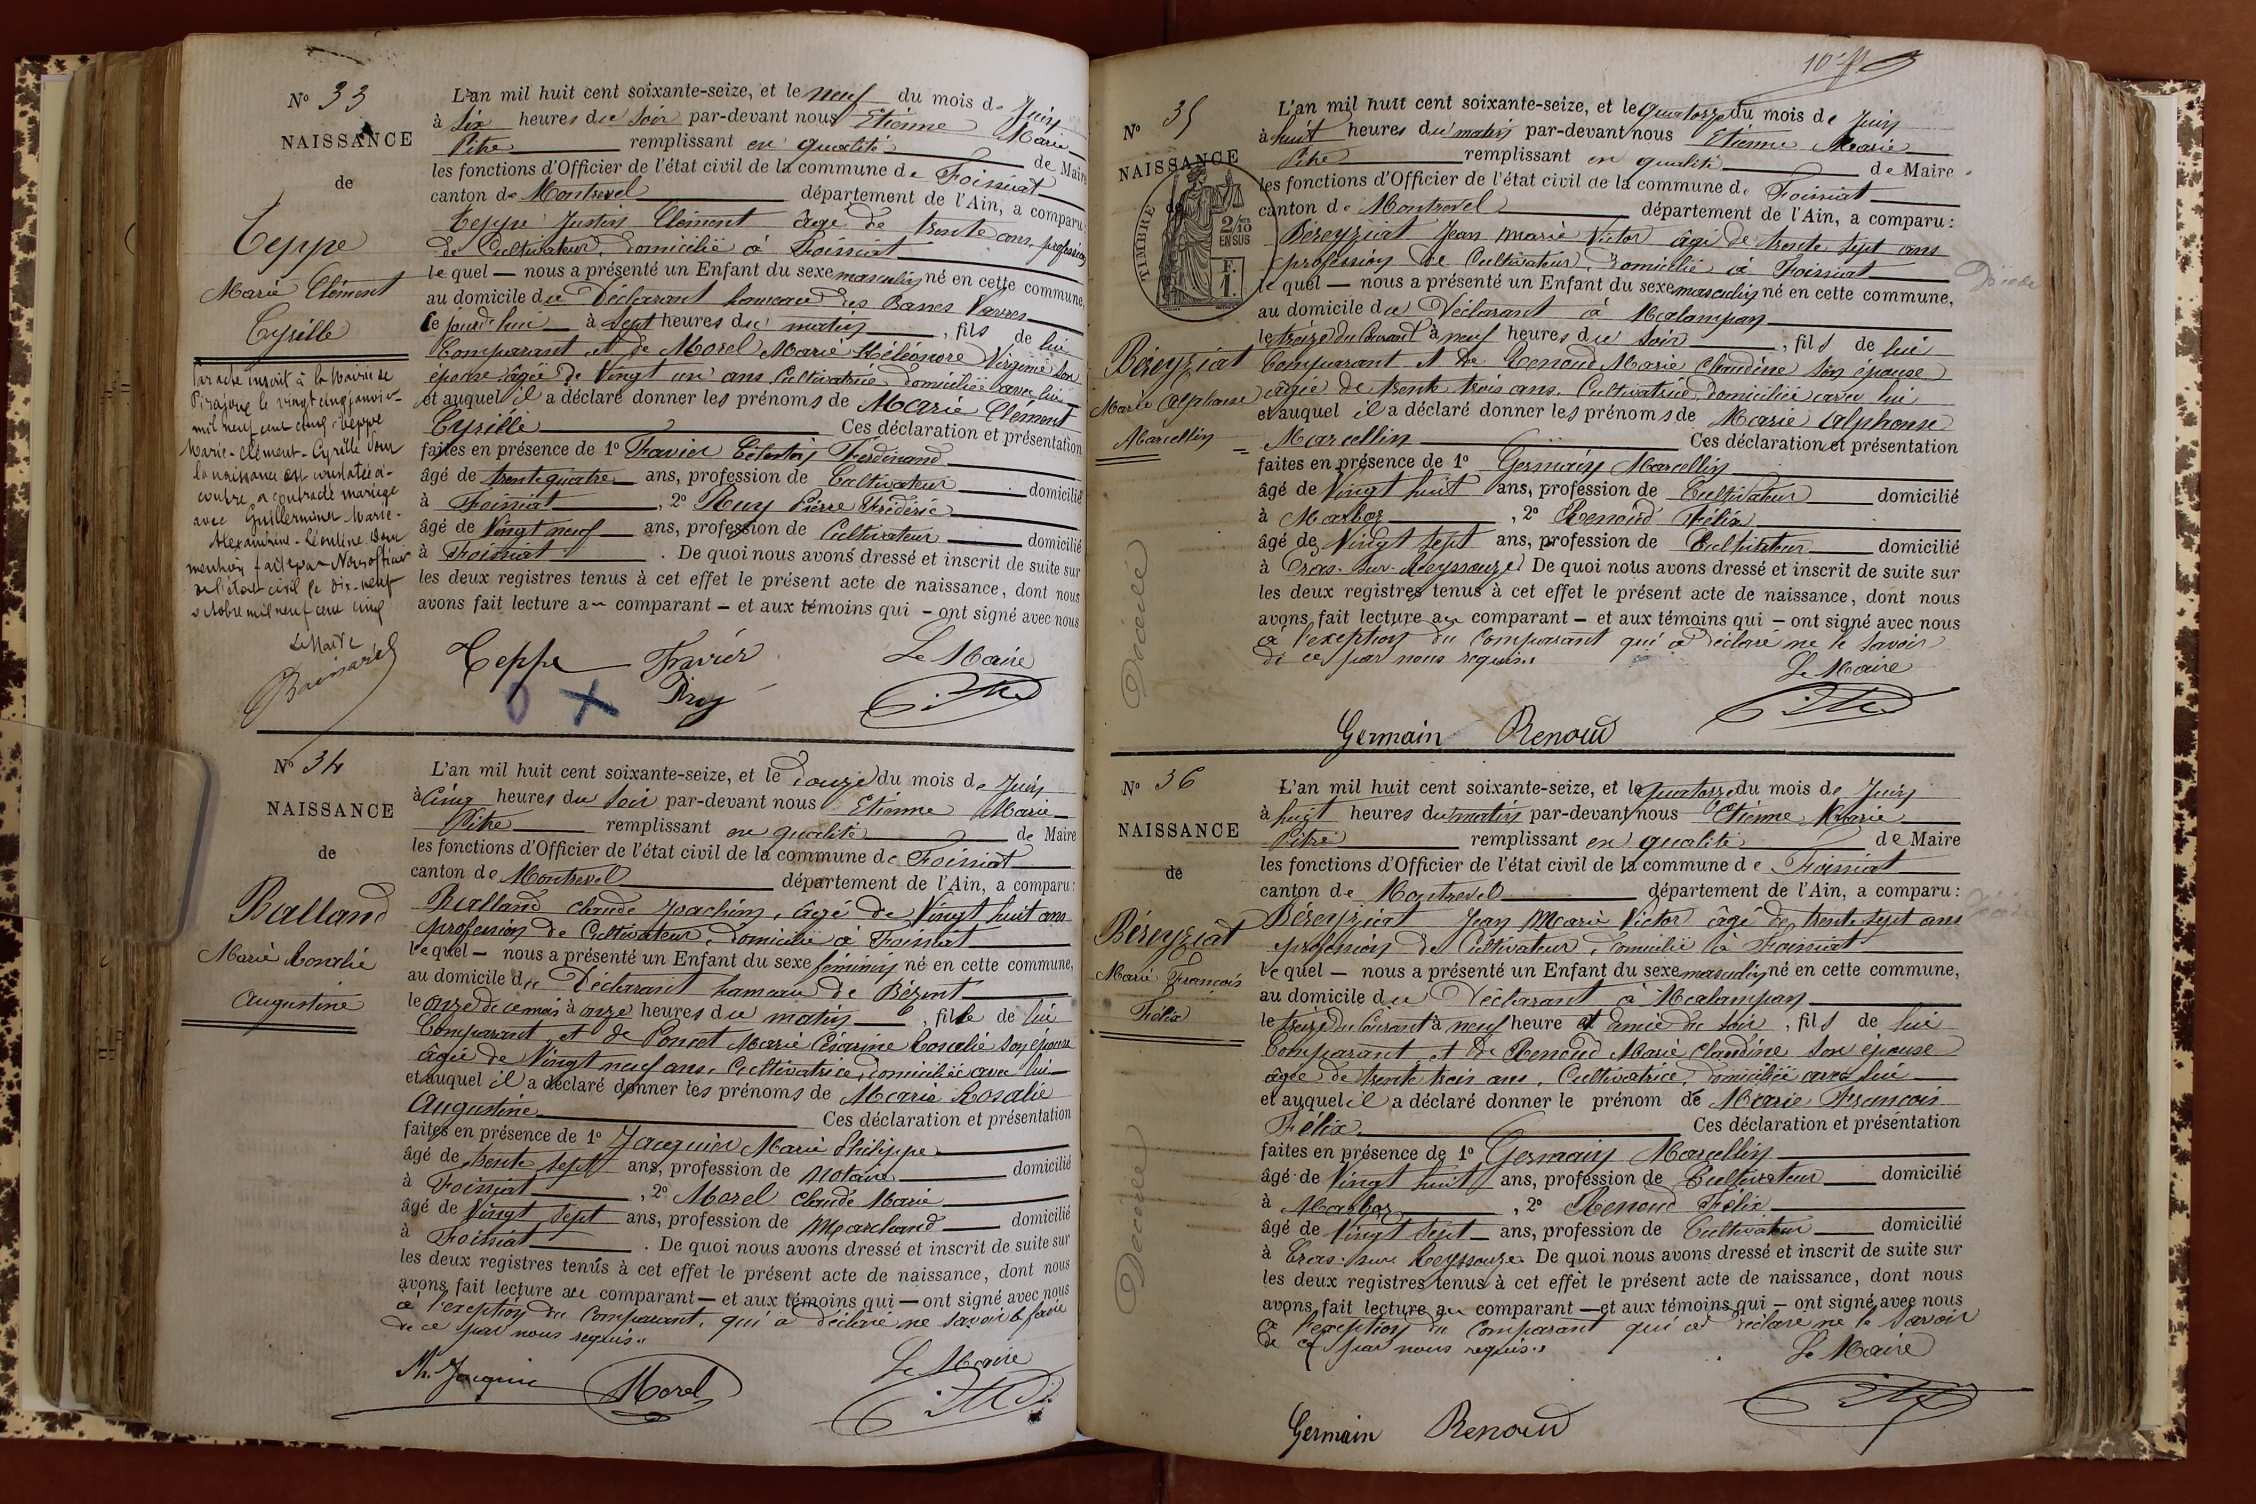 N° 33
NAISSANCE
de
Teppe
Marie Clément
Cyrille
Par acte inscrit à la Mairie de
Pirajoux le vingt cinq janvier
mil neuf cent cinq, Teppe
Marie-Clément-Cyrille dont
la naissance est constatée ci-
contre, a contracté mariage
avec Guillerminet Marie-
Alexandrine-Léontine. Dont
mention faite par Nous officier
de l'état civil le dix-neuf
octobre mil neuf cent cinq
Le Maire
L'an mil huit cent soixante-seize, et le neuf du mois de Juin
à six heures du soir par-devant nous Etienne Marie
Pitre remplissant en qualité de Maire
les fonctions d'Officier de l'état civil de la commune de Foissiat
canton de Montrevel département de l'Ain, a comparu:
Teppe Justin Clément âgé de trente ans, profession
de Cultivateur, domicilié à Foissiat
le quel — nous a présenté un Enfant du sexe masculin né en cette commune,
au domicile du Déclarant hameau des Bases Vavres
ce jourd'hui à sept heures du matin, fils de lui
Comparant et de Morel Marie Eléonore Virginie son
épouse âgée de Vingt un ans, Cultivatrice domiciliée avec lui
et auquel il a déclaré donner les prénoms de Marie Clément
Cyrille Ces déclaration et présentation
faites en présence de 1° Travier Célestin Ferdinand
âgé de trente quatre ans, profession de Cultivateur domicilié
à Foissiat, 2° Pierre Frédéric
âgé de Vingt neuf ans, profession de Cultivateur domicilié
à Foissiat. De quoi nous avons dressé et inscrit de suite sur
les deux registres tenus à cet effet le présent acte de naissance, dont nous
avons fait lecture au comparant — et aux témoins qui — ont signé avec nous
Teppe Travier Le Maire
N° 34
NAISSANCE
de
Balland
Marie Rosalie
Augustine
L'an mil huit cent soixante-seize, et le douze du mois de Juin
à Cinq heures du soir par-devant nous Etienne Marie
Pitre remplissant en qualité de Maire
les fonctions d'Officier de l'état civil de la commune de Foissiat
canton de Montrevel département de l'Ain, a comparu:
Balland Claude Joachim, âgé de Vingt huit ans
profession de Cultivateur, domicilié à Foissiat
le quel — nous a présenté un Enfant du sexe féminin né en cette commune,
au domicile du Déclarant hameau de Bézent
le onze de ce mois à onze heures du matin, fille de lui
Comparant et de Poncet Marie Césarine Rosalie son épouse
âgée de Vingt neuf ans, Cultivatrice, domiciliée avec lui
et auquel il a déclaré donner les prénoms de Marie Rosalie
Augustine Ces déclaration et présentation
faites en présence de 1° Jacquier Marie Philippe
âgé de trente sept ans, profession de Notaire domicilié
à Foissiat, 2° Morel Claude Marie
âgé de Vingt sept ans, profession de Marchand domicilié
à Foissiat. De quoi nous avons dressé et inscrit de suite sur
les deux registres tenus à cet effet le présent acte de naissance, dont nous
avons fait lecture au comparant — et aux témoins qui — ont signé avec nous
à l'exception du Comparant, qui a déclaré ne savoir le faire
de ce par nous requis.
Ph. Jacquier Morel Le Maire
N° 35
NAISSANCE
de
TIMBRE
2/10
EN SUS
F.
1
Béreyziat
Marie Alphonse
Marcellin
Décédé
L'an mil huit cent soixante-seize, et le quatorze du mois de Juin
à huit heures du matin par-devant nous Etienne Marie
Pitre remplissant en qualité de Maire
les fonctions d'Officier de l'état civil de la commune de Foissiat
canton de Montrevel département de l'Ain, a comparu:
Béreyziat Jean Marie Victor âgé de trente sept ans
profession de Cultivateur, domicilié à Foissiat
le quel — nous a présenté un Enfant du sexe masculin né en cette commune,
au domicile du Déclarant à Malampan
le treize du Courant à neuf heures du soir, fils de lui
Comparant et de Renoud Marie Claudine son épouse
âgée de trente trois ans, Cultivatrice, domiciliée avec lui
et auquel il a déclaré donner les prénoms de Marie Alphonse
Marcellin Ces déclaration et présentation
faites en présence de 1° Germain Marcellin
âgé de Vingt huit ans, profession de Cultivateur domicilié
à Marboz, 2° Renoud Félix
âgé de Vingt sept ans, profession de Cultivateur domicilié
à Cras-sur-Reyssouze. De quoi nous avons dressé et inscrit de suite sur
les deux registres tenus à cet effet le présent acte de naissance, dont nous
avons fait lecture au comparant — et aux témoins qui — ont signé avec nous
à l'exception du Comparant qui a déclaré ne le savoir
de ce par nous requis.
Le Maire
Germain Renoud
N° 36
NAISSANCE
de
Béreyziat
Marie François
Félix
Décédé
L'an mil huit cent soixante-seize, et le quatorze du mois de Juin
à huit heures du matin par-devant nous Etienne Marie
Pitre remplissant en qualité de Maire
les fonctions d'Officier de l'état civil de la commune de Foissiat
canton de Montrevel département de l'Ain, a comparu:
Béreyziat Jean Marie Victor âgé de trente sept ans
profession de Cultivateur, domicilié à Foissiat
le quel — nous a présenté un Enfant du sexe masculin né en cette commune,
au domicile du Déclarant à Malampan
le treize du Courant à neuf heure et demie du soir, fils de lui
Comparant et de Renoud Marie Claudine son épouse
âgée de trente trois ans, Cultivatrice, domiciliée avec lui
et auquel il a déclaré donner le prénom de Marie François
Félix Ces déclaration et présentation
faites en présence de 1° Germain Marcellin
âgé de Vingt huit ans, profession de Cultivateur domicilié
à Marboz, 2° Renoud Félix
âgé de Vingt sept ans, profession de Cultivateur domicilié
à Cras-sur-Reyssouze. De quoi nous avons dressé et inscrit de suite sur
les deux registres tenus à cet effet le présent acte de naissance, dont nous
avons fait lecture au comparant — et aux témoins qui — ont signé avec nous
à l'exception du Comparant qui a déclaré ne le savoir
de ce par nous requis.
Le Maire
Germain Renoud